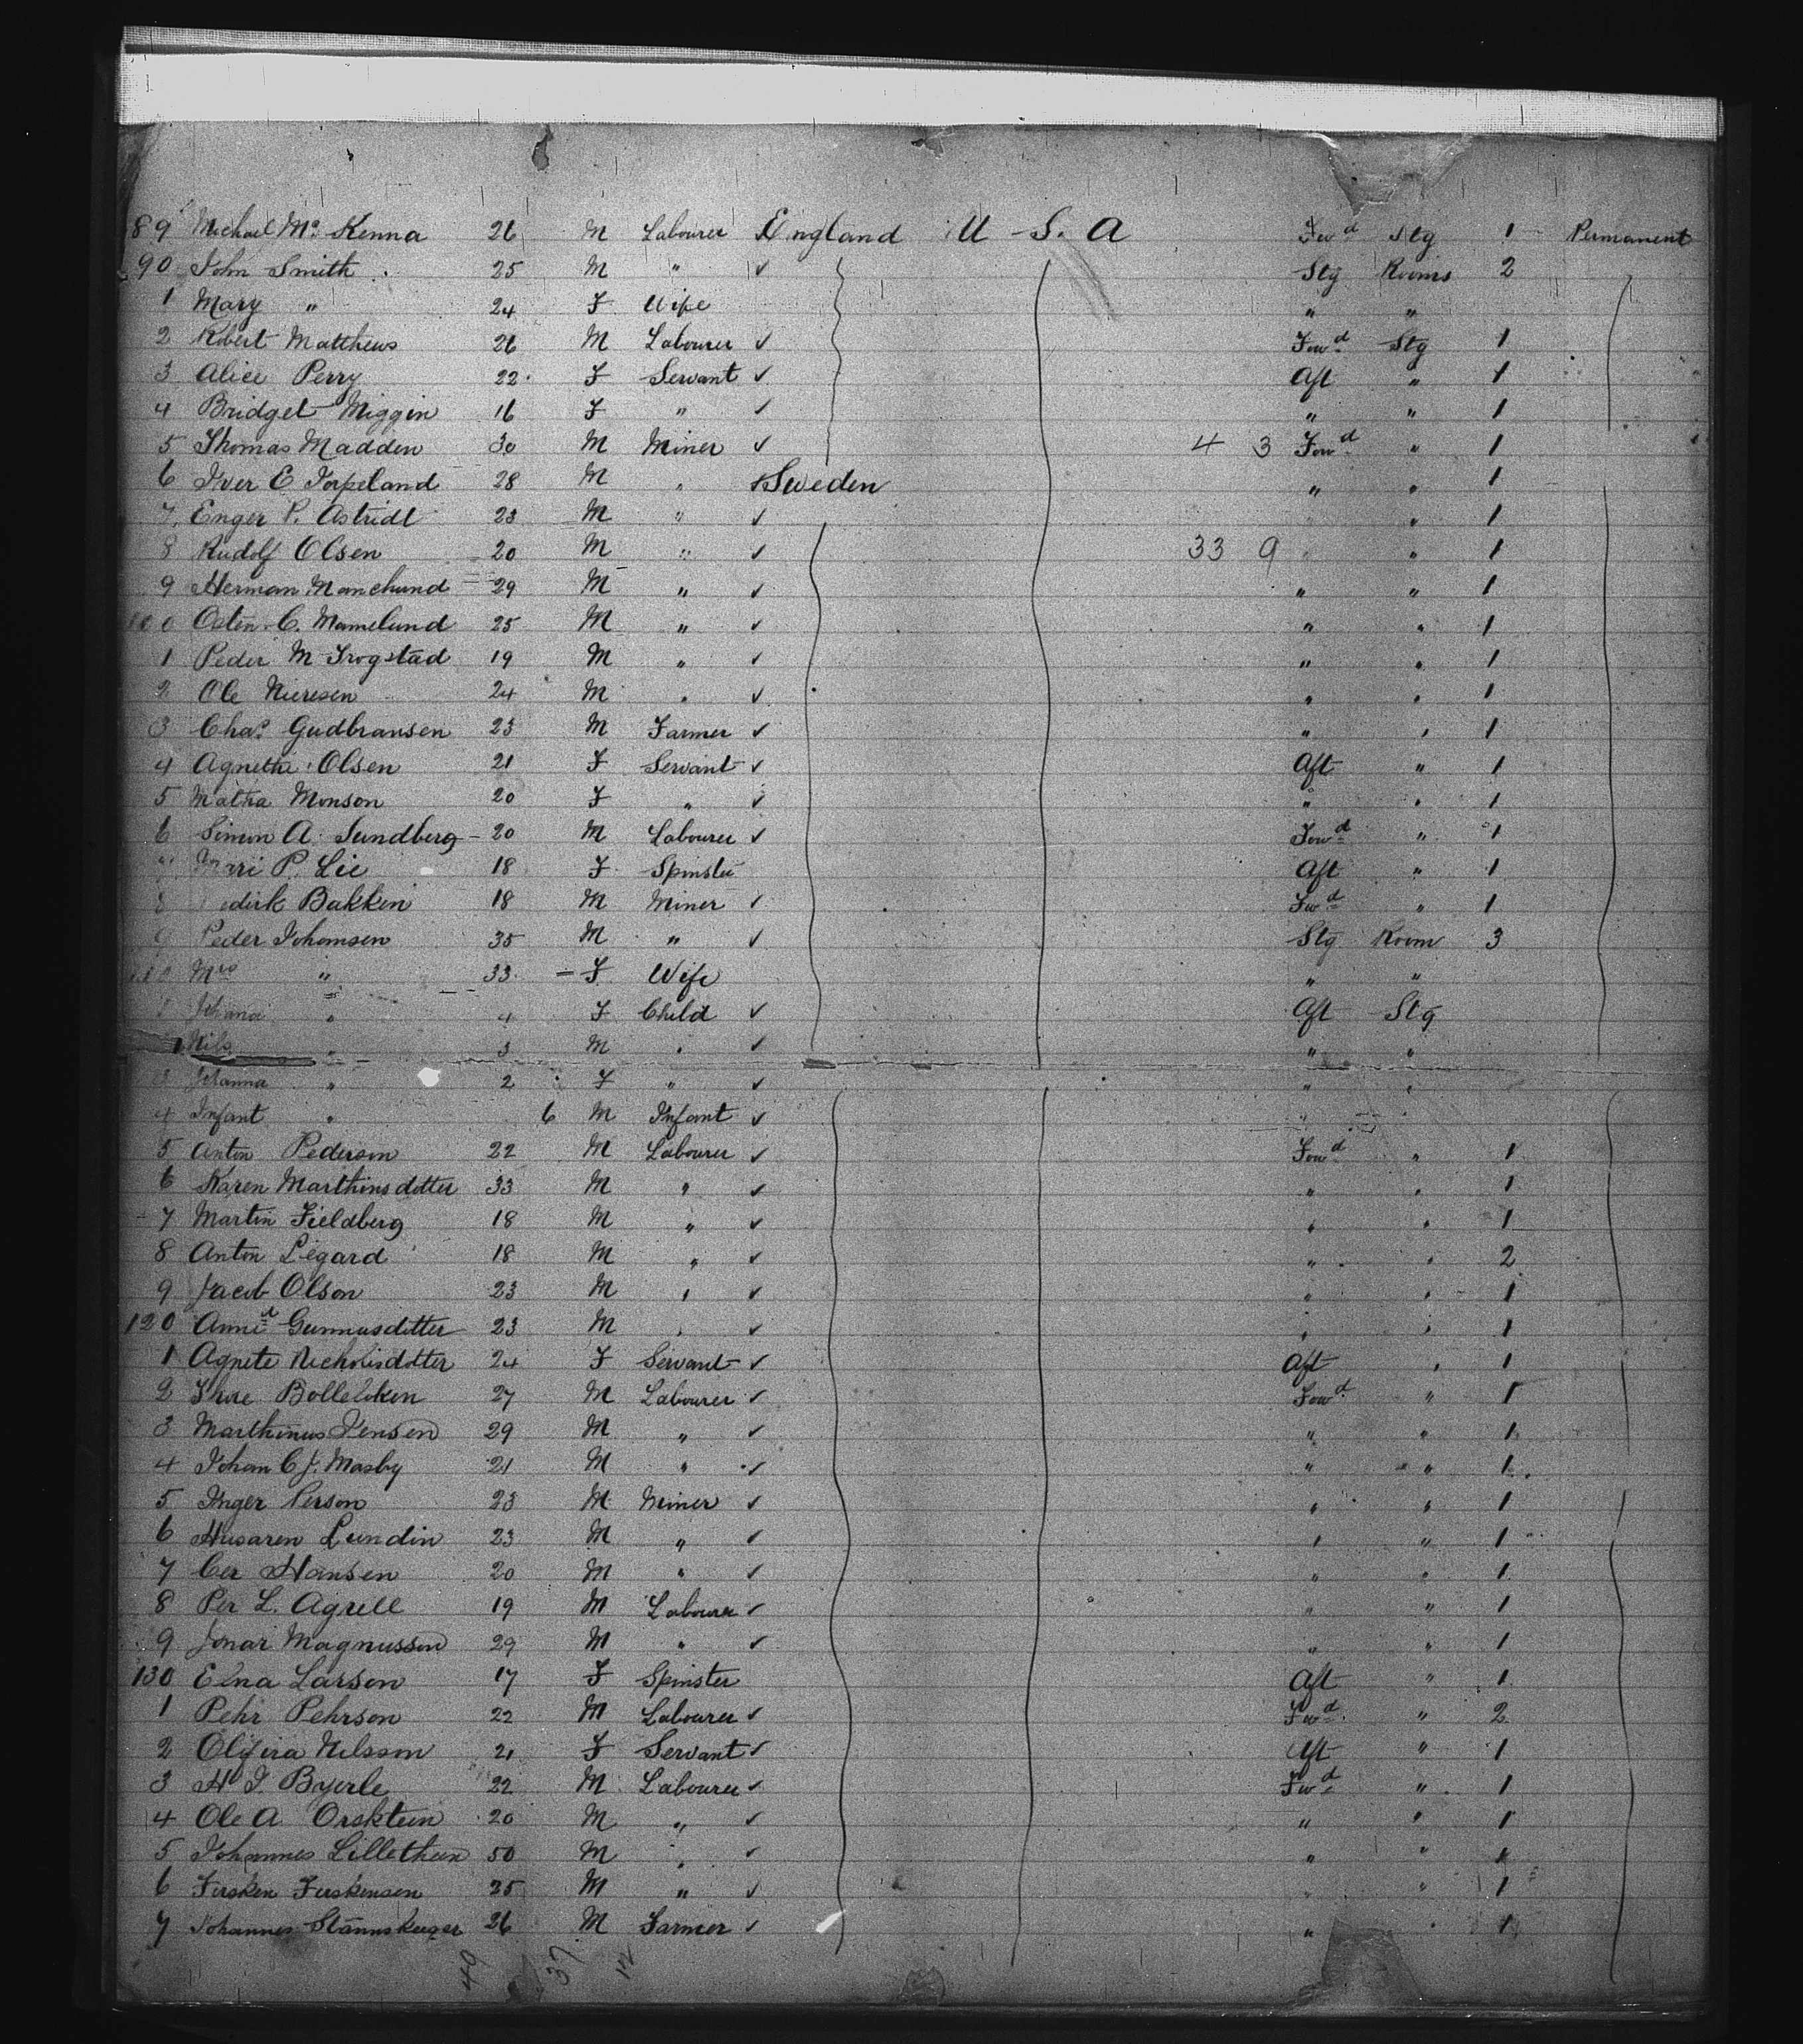 89 Michael Mc Kenna 26 M Labourer England U-S. A Fwd Stg 1 Permanent
90 John Smith 25 M " ✓ Stg Rooms 2
1 Mary " 24 F Wife " "
2 Robert Matthews 26 M Labourer ✓ Fowd Stg 1
3 Alice Perry 22 F Servant ✓ Aft " 1
4 Bridget Miggin 16 F " ✓ " " 1
5 Thomas Madden 30 M Miner ✓ 4 3 Fowd " 1
6 Iver E Torpeland 28 M " Sweden " " 1
7 Enger P. Astridt 23 M " ✓ " 1
8 Rudolf Olsen 20 M " ✓ 33 9 " " 1
9 Herman Manelund 29 M " ✓ " " 1
100 Osten C. Mamelund 25 M " ✓ " " 1
1 Peder M Trogstad 19 M " ✓ " " 1
2 Ole Nieresen 24 M " ✓ " " 1
3 Chas. Gudbransen 23 M Farmer ✓ " " 1
4 Agnethe Olsen 21 F Servant ✓ Aft " 1
5 Matha Monson 20 F " ✓ " " 1
6 Simon A. Sundberg 20 M Labourer ✓ Fowd " 1
P. Lie 18 F Spinster Aft " 1
Bakken 18 M Miner ✓ Fwd " 1
9 Peder Johomsen 35 M " ✓ Stg Room 3
Mrs " 33 F Wife " "
" 4 F Child ✓ Aft Stg
Nils " 3 M " ✓ " "
3 Johanna " 2 F " ✓ " "
4 Infant " 6 M Infant ✓ " "
5 Anton Pederson 22 M Labourer ✓ Fowd " 1
6 Karen Marthinsdotter 33 M " ✓ " " 1
7 Martin Fieldberg 18 M " ✓ " " 1
8 Anton Legard 18 M " ✓ " " 2
9 Jacob Olson 23 M " ✓ " " 1
120 Anne Gunnusdotter 23 M " ✓ " " 1
1 Agnete Nicholisdotter 24 F Servant ✓ Aft " 1
2 Bolleloken 27 M Labourer ✓ Fowd " 1
3 Marthinus Jensen 29 M " ✓ " " 1
4 Johan C J. Masby 21 M " ✓ " " 1
5 Inger Person 23 M Miner ✓ " " 1
6 Husaren Lundin 23 M " ✓ " " 1
7 Cer Hansen 20 M " ✓ " " 1
8 Per L. Agrell 19 M Labourer ✓ " " 1
9 Jonar Magnusson 29 M " ✓ " " 1
130 Elna Larson 17 F Spinster Aft " 1
1 Pehr Pehrson 22 M Labourer ✓ Fwd " 2
2 Olifira Nilsson 21 F Servant ✓ Aft " 1
3 H J. Byerle 22 M Labourer ✓ Fwd " 1
4 Ole A Orsktein 20 M " ✓ " " 1
5 Johannes Lillethun 50 M " ✓ " " 1
6 Fersken Ferskensen 25 M " ✓ " " 1
7 Johannes 26 M Farmer ✓ " " 1
49 37 12